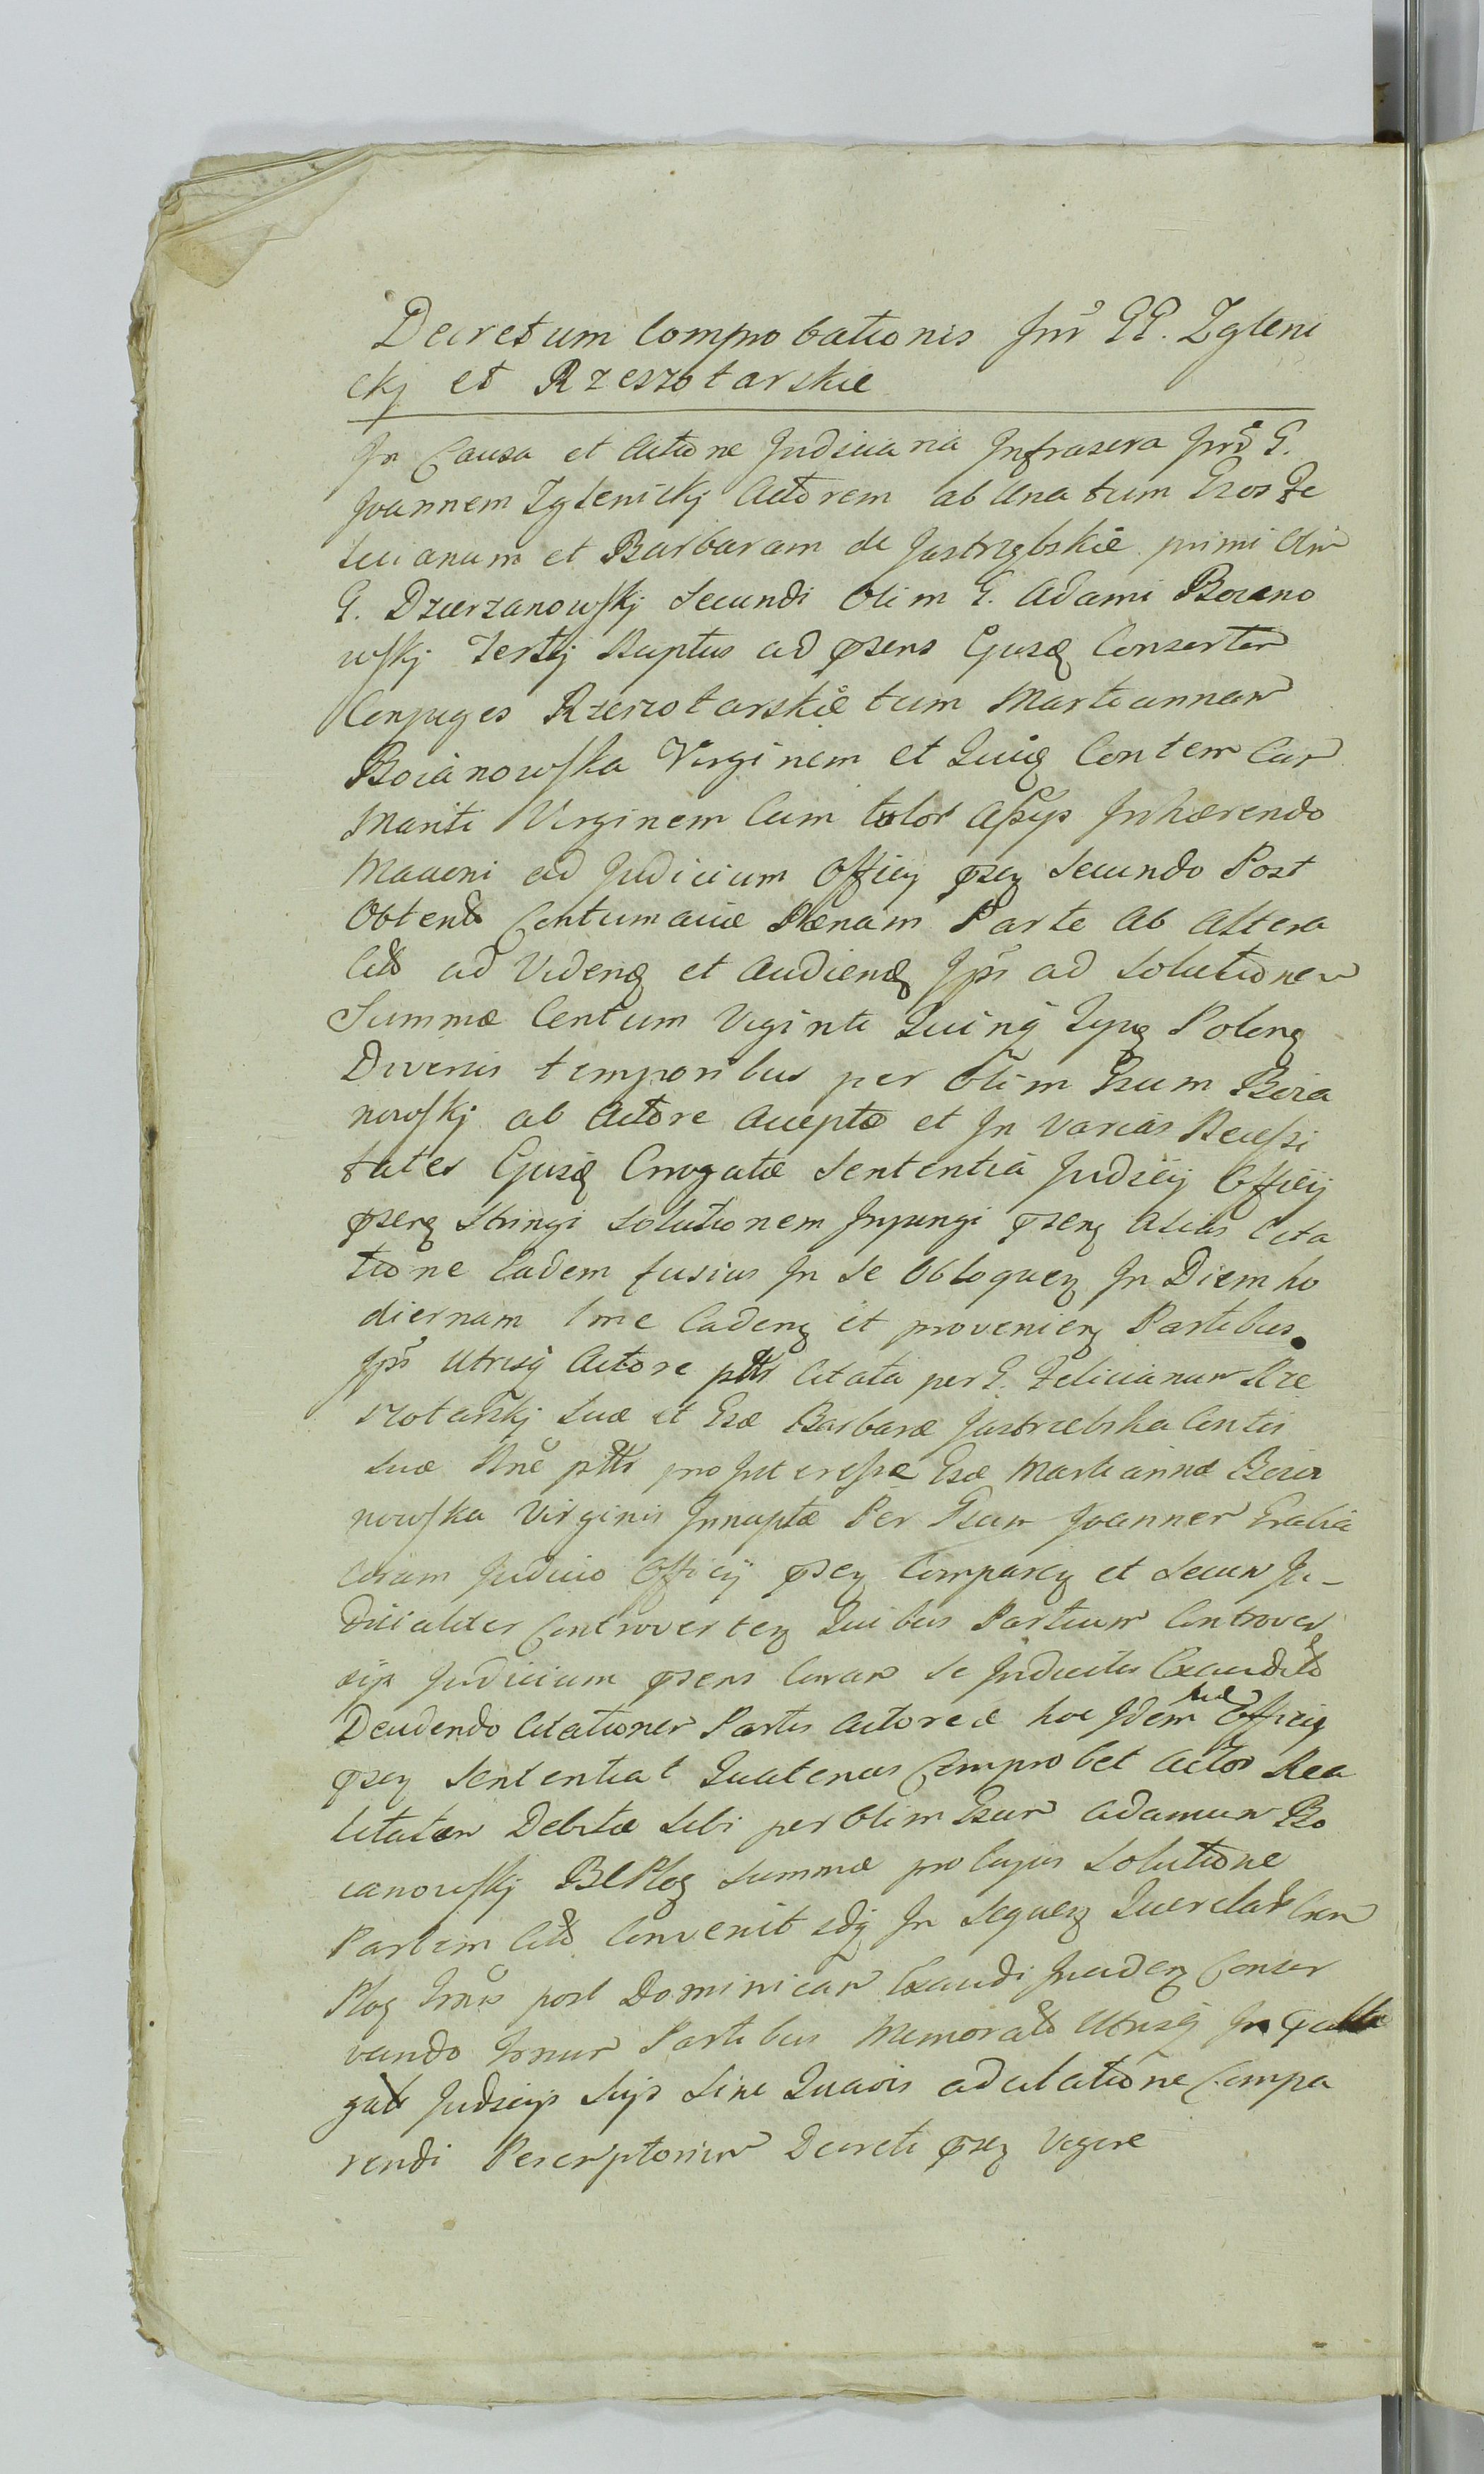 Decretum Comprobationis Inr̃ GG. Zgleni
ckj et Rzeszotarskie
In Causa et Actione Judiciaria Infrascra Inr̃ G.
Joannem Zglenickj Actorem ab Una tum Gsos Fe
licianum et Barbaram de Jastrzębskie primi Olim
G. Dzierzanowskj Secundi Olim G. Adami Boiano
wskj Tertij Nuptus ad psens Ejusq Consortem
Conjuges Rzeszotarskie tum Mariannam
Boianowska Virginem et Contem Cum
Mariti Virginem Cum tutor Assijs Inhærendo
ad Judicium Officij psen Secundo Post
Obtent Contumaciæ Pænam Parte ab Altera
Citt ad Videnq et Audienq Ips ad Solutionem
Summæ Centum Viginti Quinq Polonq
Diversis temporibus per Olim Gsum Boia
nowskj ab Actore Acceptæ et In Varias Necessi
tates Ejusq Erogatæ Sententia Judicij Officij
psenq Stringi Solutionem Injungi psenq Alias Cita
tione Eadem fusius In Se Obloquen In Diem ho
diernam Cadenq et provenienq Partibus
Ips Utrisq Actore pttr Citata per G. Felicianum Rze
szotarskj Suæ et Gsæ Barbaræ Jastrzebska Contis
Suæ Nnẽ pttr pro Interesse Gsæ Mariannæ Boia
nowska Virginis Innuptæ Per Gsum Joannem
Coram Judicio Officij psen Comparen et Secum Ju-
dicialiter Controverten Quibus Partium Controver
sijs Judicium psens Coram Se Inductis Exauditt
Decidendo Citationem Partis Actoreæ hoc Idem Jud Officij
psen Sententiat Quatenus Comprobet Actor Rea
litatem Debitæ Sibi per Olim Gsum Adamum Bo
ianowskj Summæ pro Cujus Solutione
Partem Citt Convenit In Sequen Querelar
Plog post Dominicam Exaudi Inciden Conser
vando Trnum Partibus Memoratt Utrisq In
Judicijs Sijs Sine Quavis adcitatione Compa
rendi Peremptorium Decreti psen Vigore